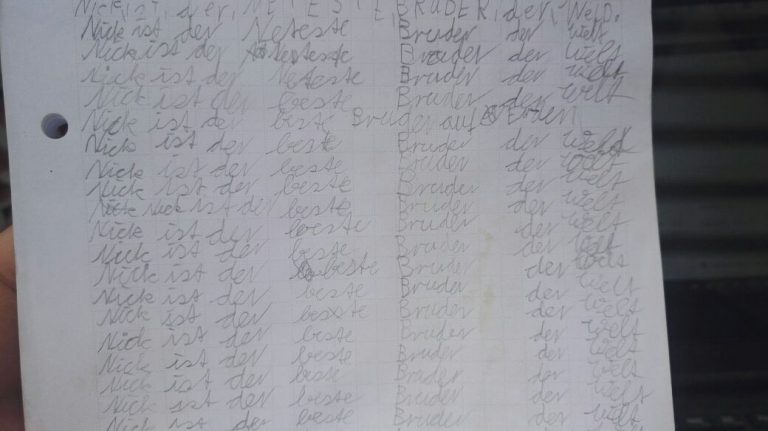 Nick ist der NETESTE BRUDER der Welt.
Nick ist der Neteste Bruder der Welt
Nick ist der Neteste Bruder der Welt
Nick ist der Neteste Bruder der Welt
Nick ist der beste Bruder der Welt
Nick ist der beste Bruder auf Erden
Nick ist der beste Bruder der Welt
Nick ist der beste Bruder der Welt
Nick ist der beste Bruder der Welt
Nick ist der beste Bruder der Welt
Nick ist der beste Bruder der Welt
Nick ist der beste Bruder der Welt
Nick ist der beste Bruder der Welt
Nick ist der beste Bruder der Welt
Nick ist der beste Bruder der Welt
Nick ist der beste Bruder der Welt
Nick ist der beste Bruder der Welt
Nick ist der beste Bruder der Welt
Nick ist der beste Bruder der Welt
Nick ist der beste Bruder der Welt